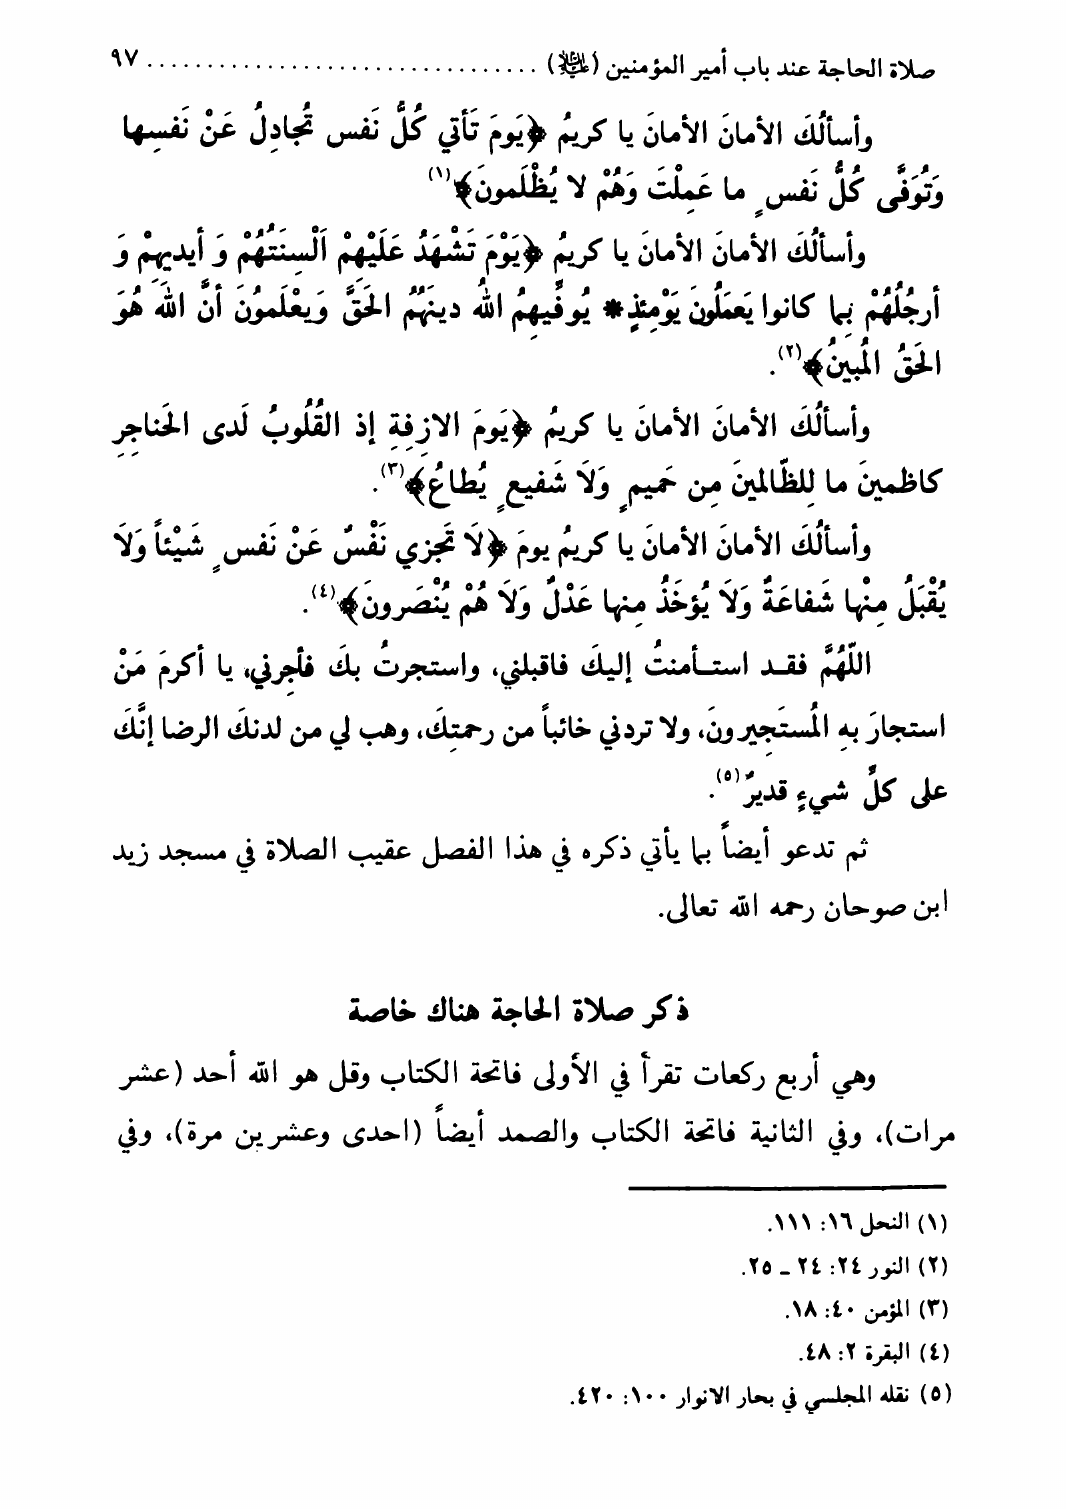 صلاة الحاجة عند باب أمير المؤمنين (عليه السلام) ................................ ٩٧
وأسألُكَ الأمانَ الأمانَ يا كريمُ ﴿يَومَ تَأتي كُلُّ نَفس تُجادِلُ عَنْ نَفسِها
وَتُوَفَّى كُلُّ نَفسٍ ما عَمِلْتَ وَهُمْ لا يُظْلَمونَ﴾(١)
وأسألُكَ الأمانَ الأمانَ يا كريمُ ﴿يَوْمَ تَشْهَدُ عَلَيْهِمْ اَلْسِنَتُهُمْ وَ أيديهِمْ وَ
أرجُلُهُمْ بِما كانوا يَعمَلُونَ يَوْمِئذٍ* يُوفِّيهِمُ اللهُ دينَهُمُ الحَقَّ وَيعْلَموُنَ أنَّ اللهَ هُوَ
الحَقُ المُبينُ﴾(٢).
وأسألُكَ الأمانَ الأمانَ يا كريمُ ﴿يَومَ الازِفِةِ إذ القُلُوبُ لَدى الحَناجِرِ
كاظمينَ ما لِلظّالمينَ مِن حَميمٍ وَلاَ شَفيعٍ يُطاعُ﴾(٣).
وأسألُكَ الأمانَ الأمانَ يا كريمُ يومَ ﴿لاَ تَجزي نَفْسٌ عَنْ نَفسٍ شَيْئاً وَلاَ
يُقْبَلُ مِنْها شَفاعَةٌ وَلاَ يُؤخَذُ مِنها عَدْلٌ وَلاَ هُمْ يُنْصَرونَ﴾(٤).
اللّهُمَّ فقـد استـأمنتُ إليكَ فاقبلني، واستجرتُ بكَ فأجِرني، يا أكرمَ مَنْ
استجارَ بهِ المُستَجِيرونَ، ولا تردني خائباً من رحمتِكَ، وهب لي من لدنكَ الرضا إنَّكَ
على كلِّ شيءٍ قديرٌ(٥).
ثم تدعو أيضاً بما يأتي ذكره في هذا الفصل عقيب الصلاة في مسجد زيد
ابن صوحان رحمه الله تعالى.
ذكر صلاة الحاجة هناك خاصة
وهي أربع ركعات تقرأ في الأولى فاتحة الكتاب وقل هو الله أحد (عشر
مرات)، وفي الثانية فاتحة الكتاب والصمد أيضاً (احدى وعشرين مرة)، وفي
(١) النحل ١٦: ١١١.
(٢) النور ٢٤: ٢٤ ـ ٢٥.
(٣) المؤمن ٤٠: ١٨.
(٤) البقرة ٢: ٤٨.
(٥) نقله المجلسي في بحار الانوار ١٠٠: ٤٢٠.